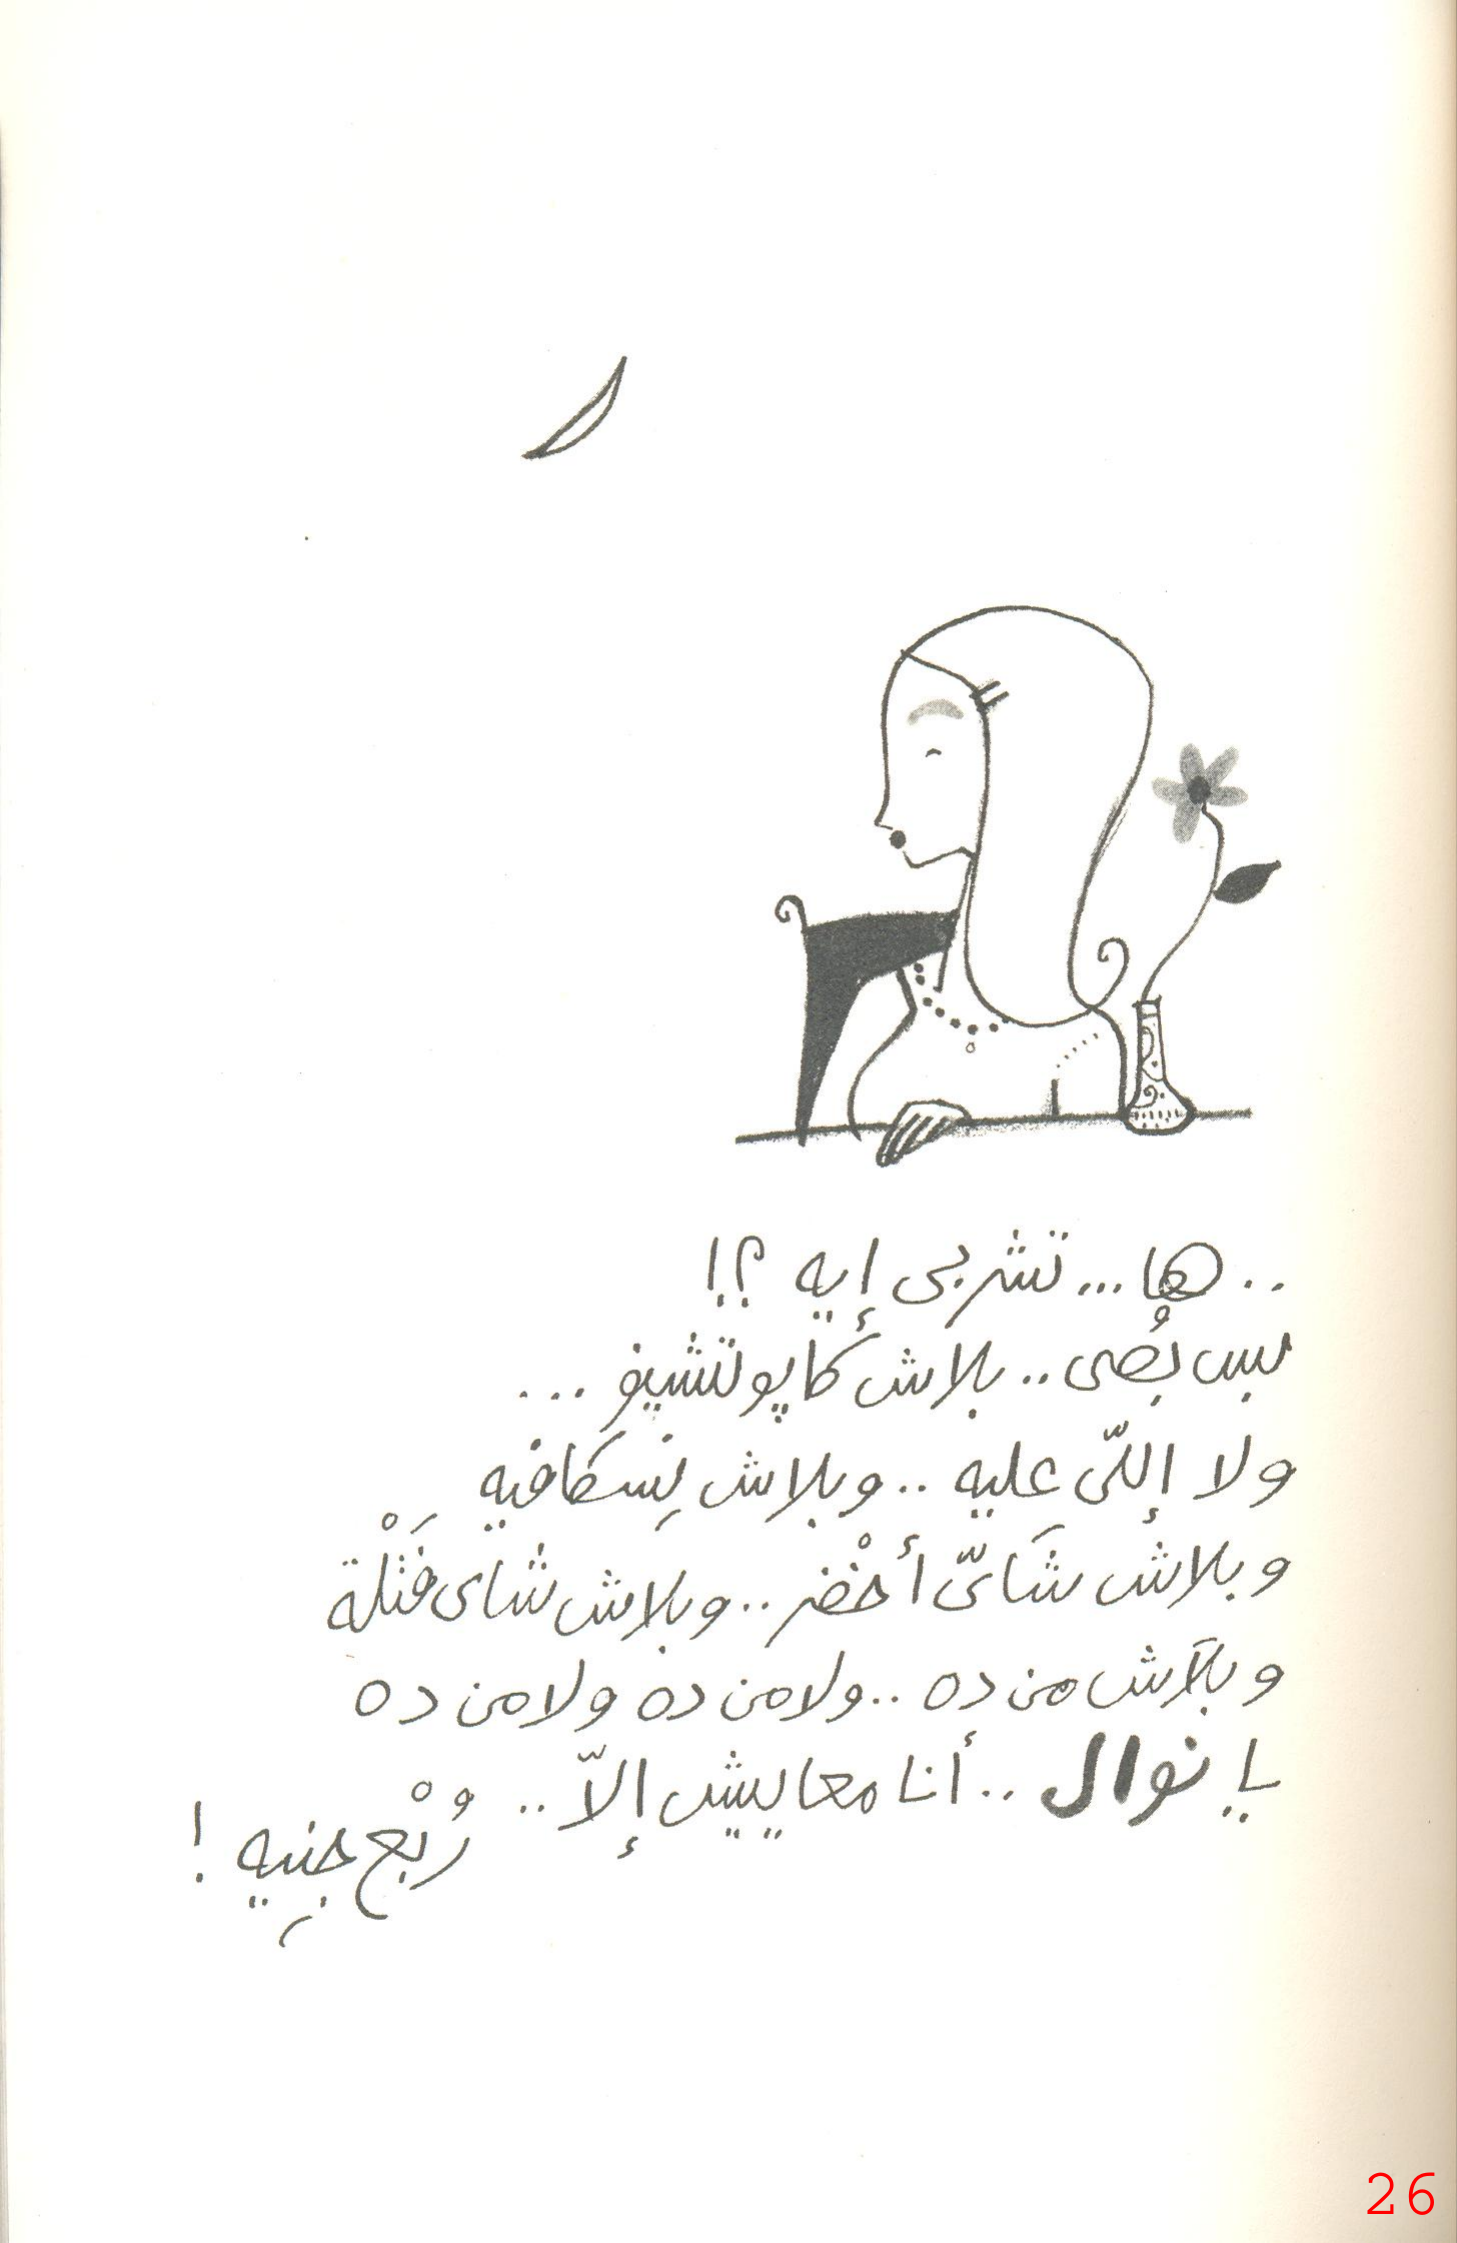 .. ها... تشربى إيه ؟!
بس بُصى.. بلاش كاپوتشينو ...
ولا إللّى عليه .. وبلاش نِسكافيه
وبلاش شَاىّ أخْضر .. وبلاش شاى فَتْلة
وبلَاش من ده .. ولا من ده ولا من ده
يا نوال .. أنا معاييش إلاّ .. رُبْع جنِيه !
26